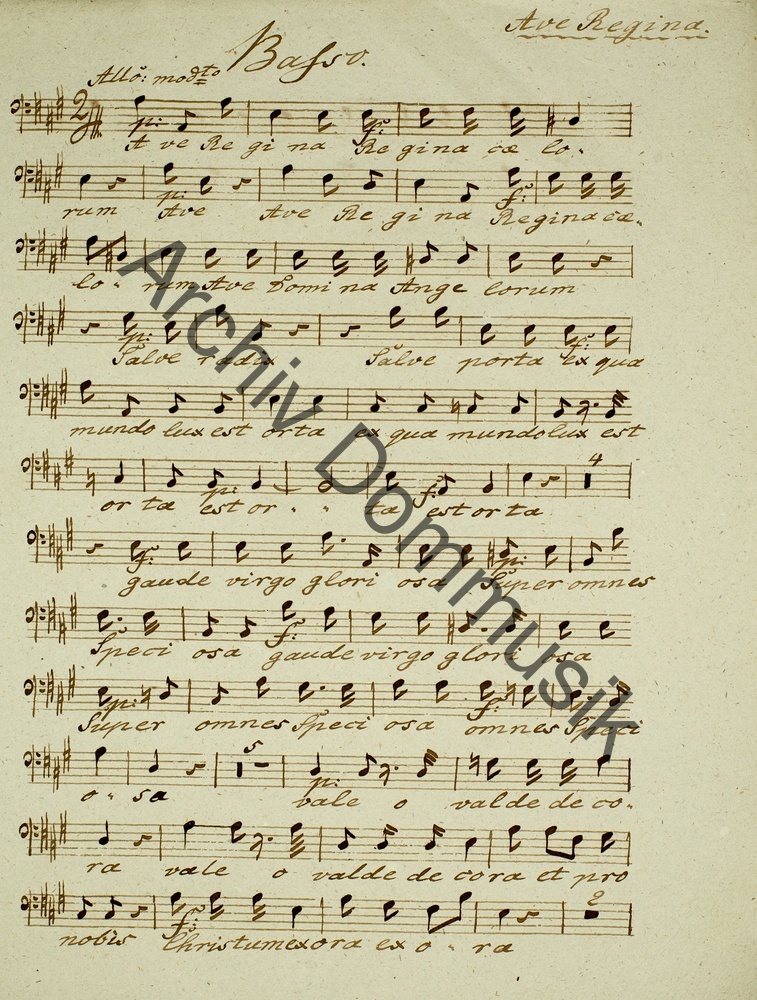 Ave Regina.
Basso.
Allo: modto
p: f:
A ve Re gi na Re gina cæ lo-
p: f:
rum Ave Ave Re gi na Regina cæ-
lo - rum Ave Domi na Ange lorum
p: f:
Salve radix Salve porta ex qua
mundo lux est orta ex qua mundo lux est
4
p: f:
or ta est or - - ta est or ta
f: p:
gaude virgo glori osa Super omnes
f:
Speci osa gaude virgo glori osa
p: f:
Super omnes Speci osa omnes Speci
5
p:
o - sa vale o valde de co-
ra vale o valde de cora et pro
2
f:
nobis Christum exora ex o - ra
Archiv Dommusik